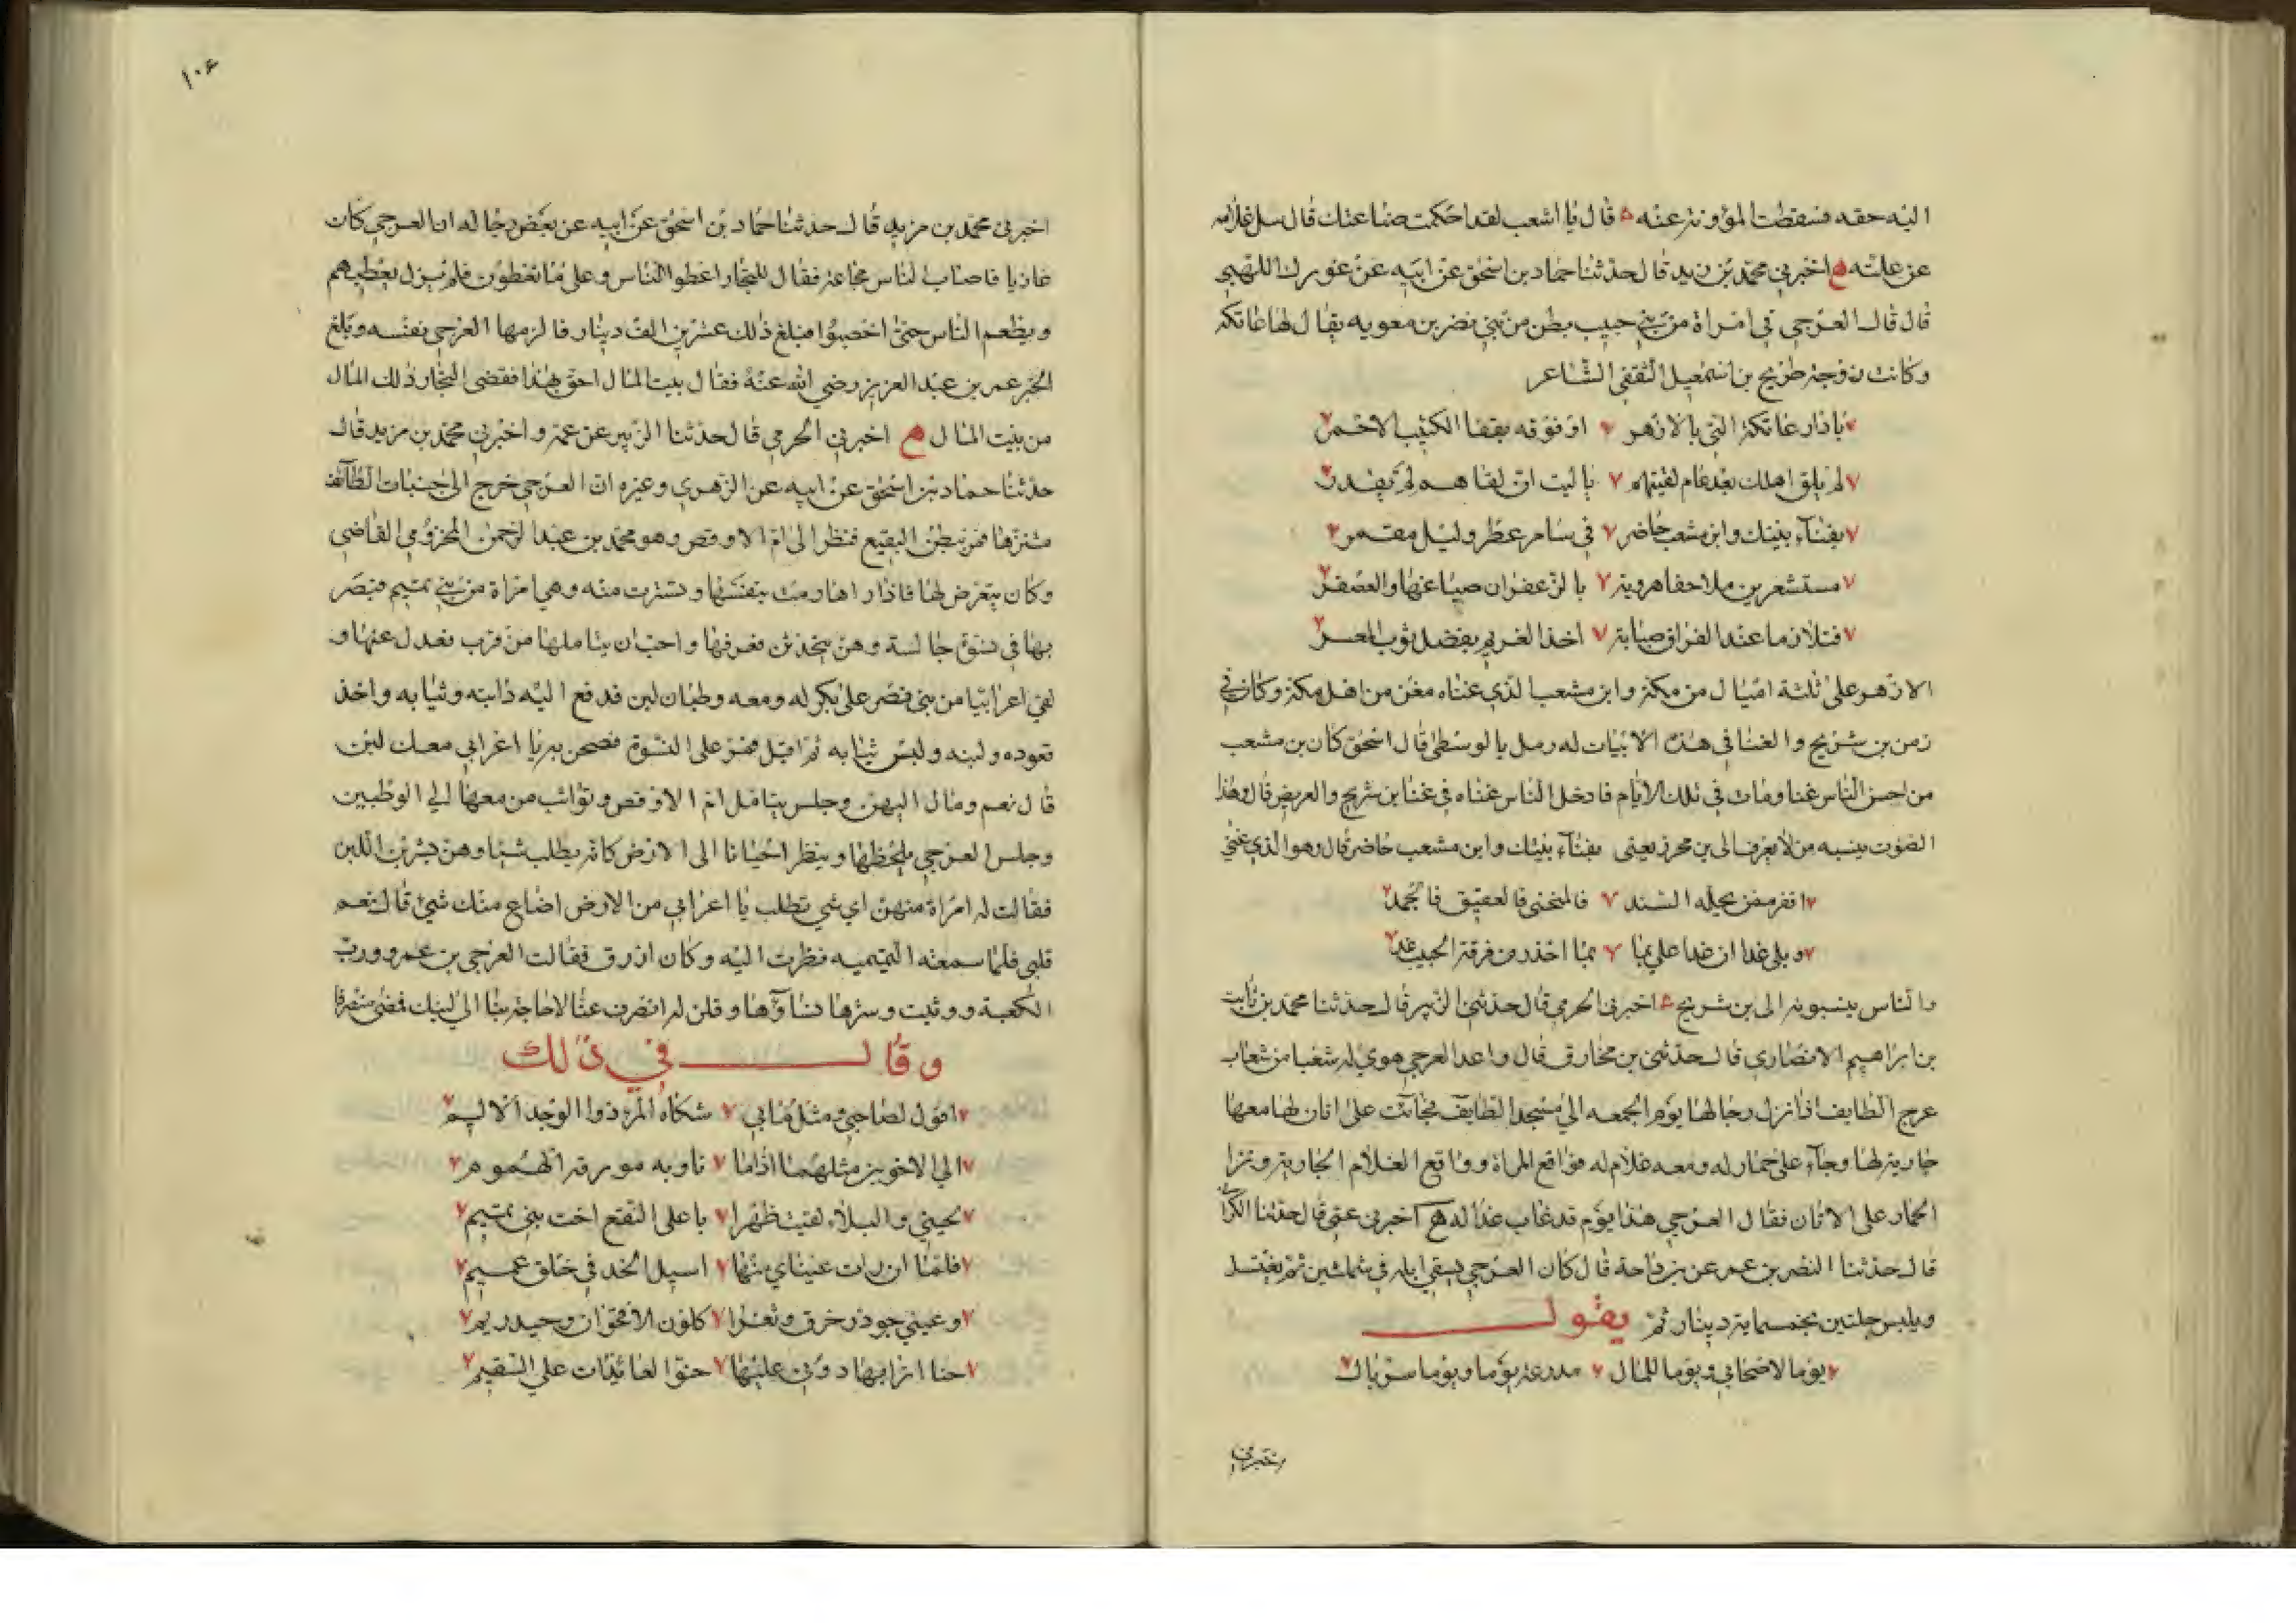 اليه حقه فسقطت المؤونة عنه قال يا اشعب لقد احكمت صناعتك قال سل غلامه
عن علته اخبرني محمد بن زيد قال حدثنا حماد بن اسحق عن ابيه عن عورك اللهبي
قال قال العرجي في امراة من بني حبيب بطن من بني نصر بن معويه يقال لها عاتكة
وكانت زوجة طريح بن اسمعيل الثقفي الشاعر
يا دار عاتكة التي بالازهر او فوقه بقفا الكثيب الاحمر
لم يلق اهلك بعد عام لقيتهم يا ليت ان لقاهم لم يقدر
بفناء بيتك وابن مشعب حاضر في سامر عطر وليل مقمر
مستشعرين ملاحفا هروية بالزعفران صباغها والعصفر
فتلازما عند الفراق صبابة اخذ الغريم بفضل ثوب المعسر
الازهر على ثلثة اميال من مكة وابن مشعب الذي عناه مغن من اهل مكة وكان في
زمن بن سريج والغنا في هذه الابيات له رمل بالوسطى قال اسحق كان بن مشعب
من احسن الناس غنا ومات في تلك الايام فادخل الناس غناه في غنا بن سريج والغريض قال وهذا
الصوت ينسبه من لا يعرف الى بن محرز يعني بفناء بيتك وابن مشعب حاضر قال وهو الذي غنى
اقفر ممن يحله السند فالمنحنى فالعقيق فالجمد
ويلي غدا ان غدا علي بما بما احذر من فرقة الحبيب غد
والناس ينسبونه الى بن سريج اخبرني الحرمي قال حدثني الزبير قال حدثنا محمد بن ثابت
بن ابراهيم الانصاري قال حدثني بن مخارق قال واعد العرجي هوي له شعبا من شعاب
عرج الطايف اذا نزل رجالها يوم الجمعه الي مسجد الطايف فجائت على اتان لها معها
جارية لها وجاء على حمار له ومعه غلام له فواقع المراة وواقع الغلام الجارية ونزا
الحمار على الاتان فقال العرجي هذا يوم قد غاب عذاله اخبرني عمي قال حدثنا الكراني
قال حدثنا النضر بن عمر عن بن داحة قال كان العرجي يسقي ابله في شملتين ثم يغتسل
ويلبس حلتين بخمسماية دينار ثم يقول
يوما لاصحابي ويوما للمال مدرعة يوما ويوما سربال
اخبرني
١٠٦
اخبرني محمد بن مزيد قال حدثنا حماد بن اسحق عن ابيه عن بعض رجاله ان العرجي كان
غازيا فاصاب الناس مجاعة فقال للتجار اعطوا الناس وعلي ما تعطون فلم يزل يعطيهم
ويطعم الناس حتى اخصبوا فبلغ ذلك عشرين الف دينار فالزمها العرجي نفسه وبلغ
الخبر عمر بن عبد العزيز رضي الله عنه فقال بيت المال احق بهذا فقضى التجار ذلك المال
من بيت المال اخبرني الحرمي قال حدثنا الزبير عن عمه واخبرني محمد بن مزيد قال
حدثنا حماد بن اسحق عن ابيه عن الزهري وغيره ان العرجي خرج الى جنبات الطائف
متنزها فمر ببطن البقيع فنظر الى ام الاوقص وهو محمد بن عبد الرحمن المخزومي القاضي
وكان يتعرض لها فاذا راها رمت بنفسها وتسترت منه وهي امراة من بني تميم فبصر
بها في نسوة جالسة وهن يتحدثن فعرفها واحب ان يتاملها من قرب فعدل عنها و
لقي اعرابيا من بني نصر على بكر له ومعه وطبان لبن فدفع اليه دابته وثيابه واخذ
قعوده ولبنه ولبس ثيابه ثم اقبل فمر على النسوة فصحن به يا اعرابي معك لبن
قال نعم ومال اليهن وجلس يتامل ام الاوقص وتواثب من معها الي الوطبين
وجلس العرجي يلحظها وينظر احيانا الى الارض كانه يطلب شيئا وهن يشربن اللبن
فقالت له امراة منهن اي شي تطلب يا اعرابي من الارض اضاع منك شيئ قال نعم
قلبي فلما سمعته التميميه نظرت اليه وكان ازرق فقالت العرجي بن عمرو ورب
الكعبة ووثبت وسترها نساؤها وقلن له انصرف عنا لا حاجة بنا الي لبنك فمضى منصرفا
وقال في ذلك
اقول لصاحبي ومثل مابي شكاه المرء ذو الوجد الاليم
الي الاخوين مثلهما اذا ما تاوبه مورقة الهموم
لحيني والبلاء لقيت ظهرا باعلى النقع اخت بني تميم
فلما ان رات عيناي منها اسيل الخد في خلق عميم
وعيني جوذر خرق وثغرا كلون الاقحوان وجيد ريم
حنا اترابها دوني عليها حنو العائدات علي السقيم